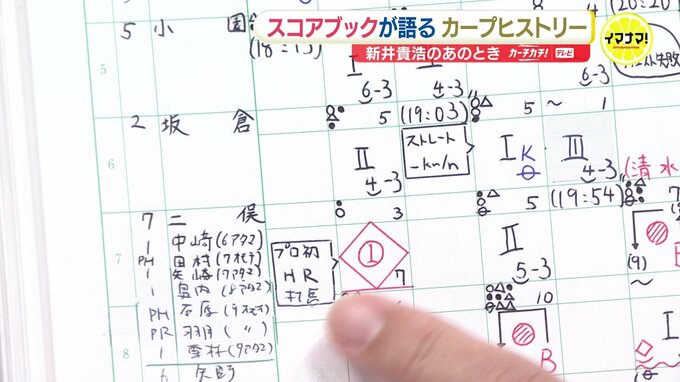 スコアブックが語る カープヒストリー
新井貴浩のあのとき カーチカチ! テレビ
イマナマ!
5 小園
(18:13)
I
6-3
I
4-3
6-3
5
2 坂倉
5 (19:03)
5 〜 1
II
4-3
ストレート
-km/h
I K
III
4-3
(清水
6
5 (19:54)
7 二俣
3
1 中﨑(6アタマ)
PH 田村(7オモテ)
1 矢崎(7アタマ)
1 島内(8アタマ)
PH 石原(9オモテ)
PR 羽月( 〃 )
1 栗林(9アタマ)
6 矢野
プロ初
HR
打長
①
7
II
5-3
(9)
B
10
B
I
7
8